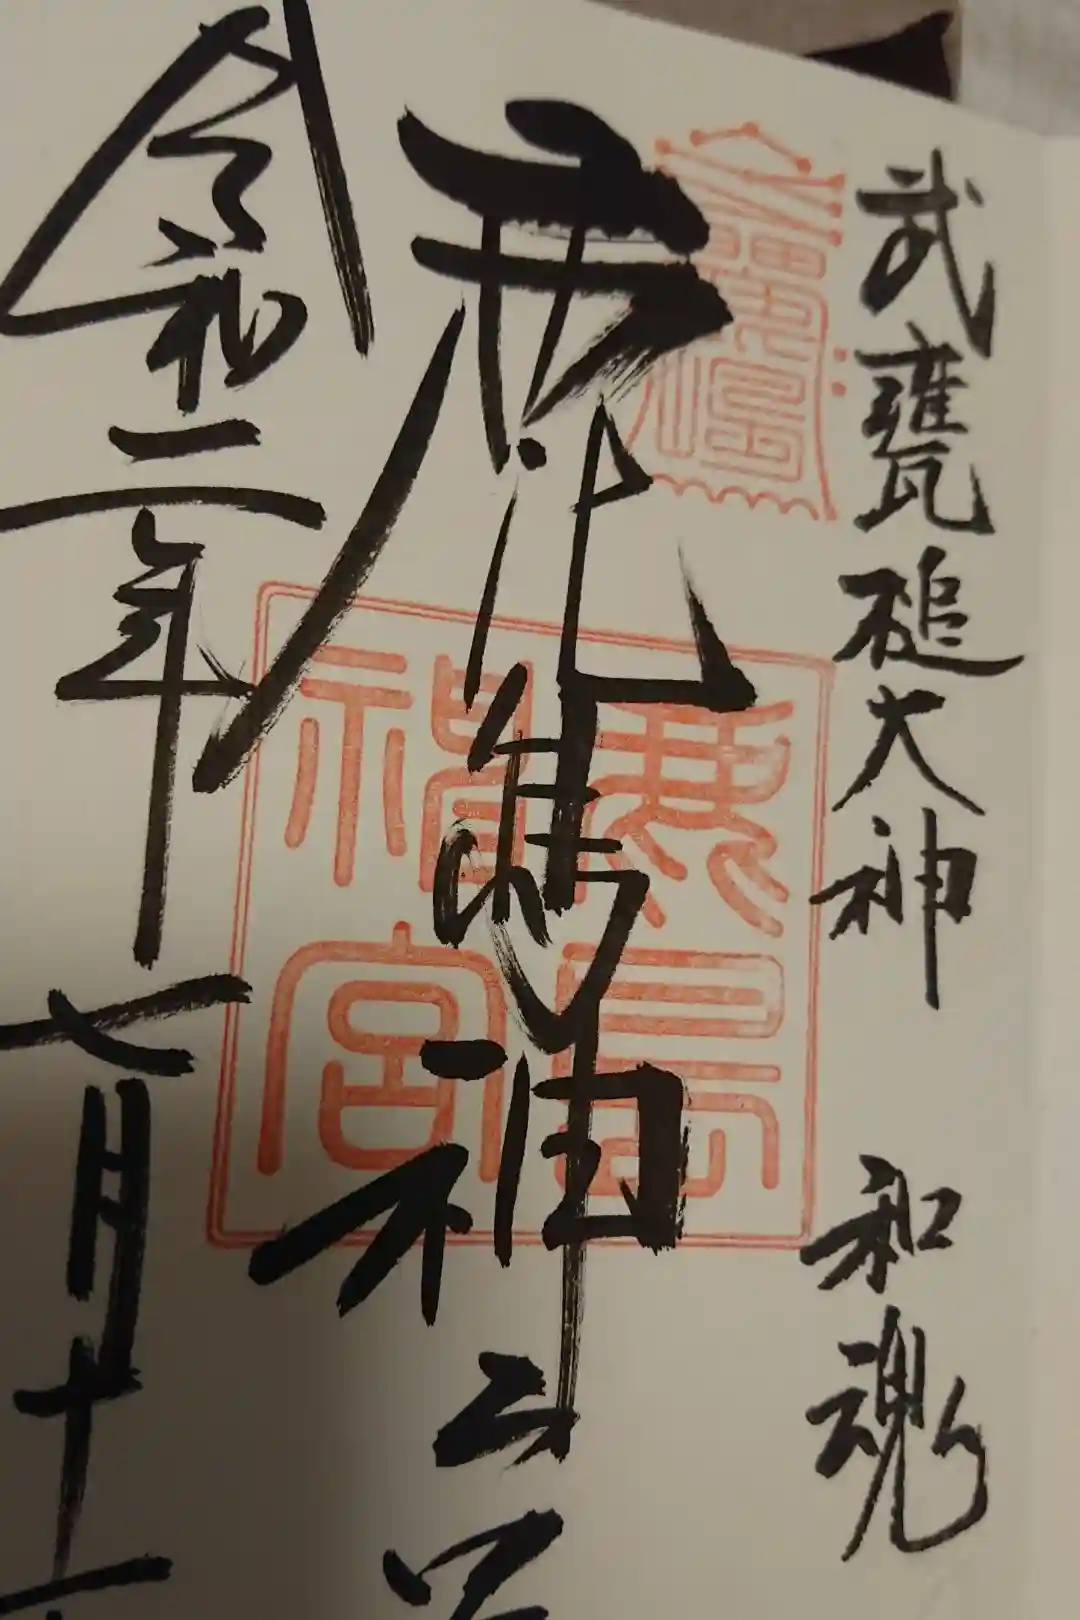 武甕槌大神 和魂
鹿島神宮
鹿島
神宮
令和二年七月十